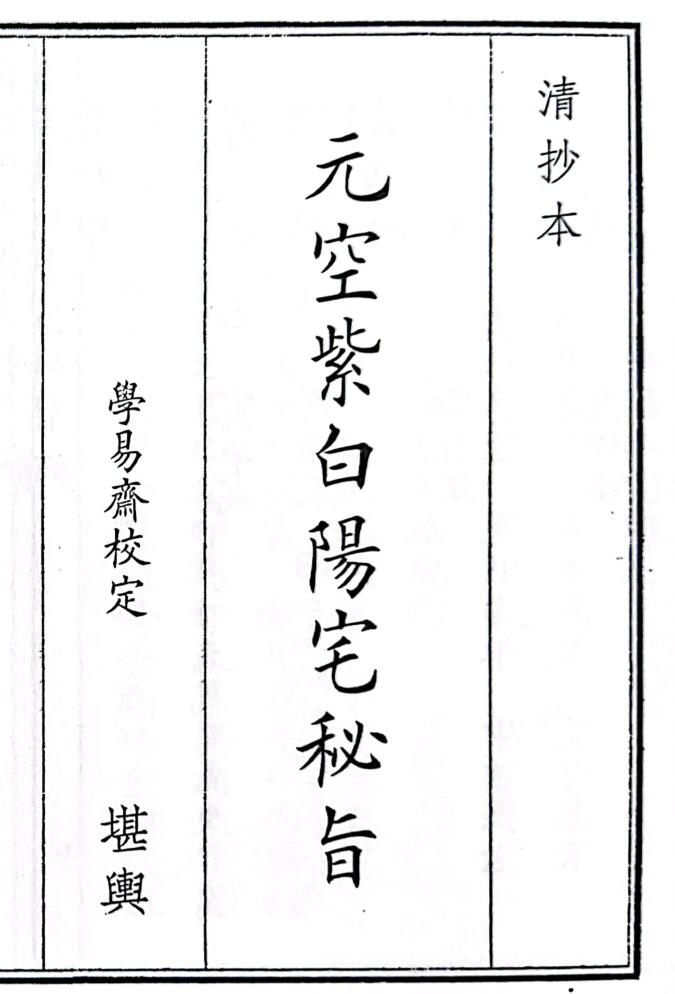 清抄本
元空紫白陽宅秘旨
學易齋校定 堪輿